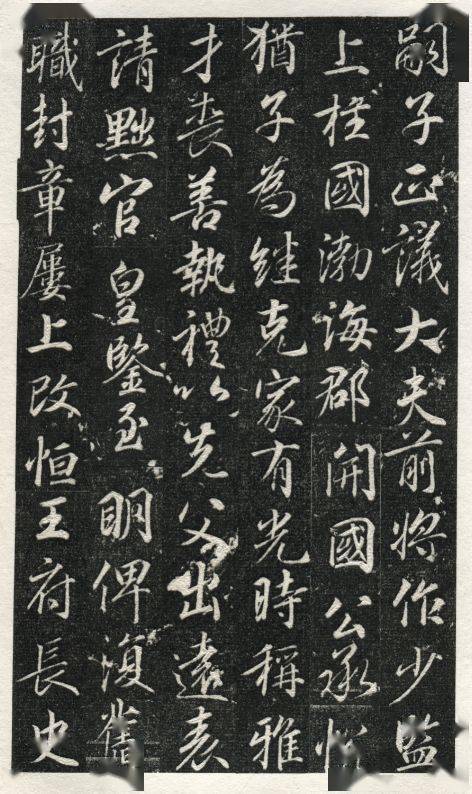 嗣子正議大夫前將作少監
上柱國渤海郡開國公承悅
猶子為繼克家有光時稱雅
才喪善執禮以先父出遠表
請黜官皇鑒至明俾復舊
職封章屢上改恒王府長史